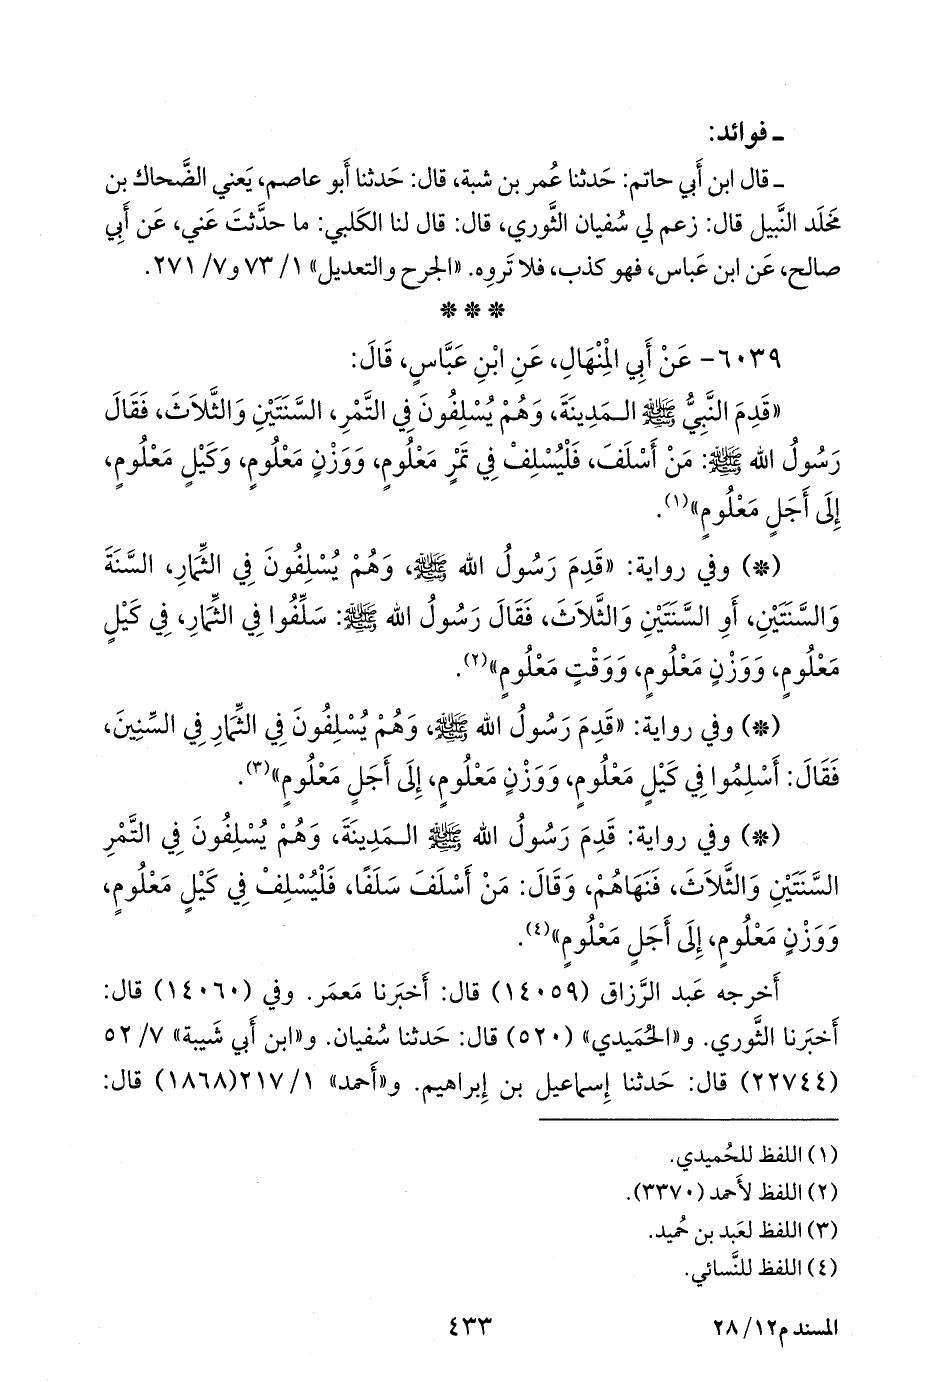 ـ فوائد:
ـ قال ابن أَبي حاتم: حَدثنا عُمر بن شبة، قال: حَدثنا أَبو عاصم، يَعني الضَّحاك بن
مَخلَد النَّبيل قال: زعم لي سُفيان الثَّوري، قال: قال لنا الكَلبي: ما حدَّثتَ عَني، عَن أَبي
صالح، عَن ابن عَباس، فهو كذب، فلا تَروِه. «الجرح والتعديل» ١/ ٧٣ و٧/ ٢٧١.
* * *
٦٠٣٩- عَنْ أَبِي الْمِنْهَالِ، عَنِ ابْنِ عَبَّاسٍ، قَالَ:
«قَدِمَ النَّبِيُّ ﷺ الـمَدِينَةَ، وَهُمْ يُسْلِفُونَ فِي التَّمْرِ، السَّنَتَيْنِ وَالثَّلَاثَ، فَقَالَ
رَسُولُ الله ﷺ: مَنْ أَسْلَفَ، فَلْيُسْلِفْ فِي تَمْرٍ مَعْلُومٍ، وَوَزْنٍ مَعْلُومٍ، وَكَيْلٍ مَعْلُومٍ،
إِلَى أَجَلٍ مَعْلُومٍ»(١).
(*) وفي رواية: «قَدِمَ رَسُولُ الله ﷺ، وَهُمْ يُسْلِفُونَ فِي الثِّمَارِ، السَّنَةَ
وَالسَّنَتَيْنِ، أَوِ السَّنَتَيْنِ وَالثَّلَاثَ، فَقَالَ رَسُولُ الله ﷺ: سَلِّفُوا فِي الثِّمَارِ، فِي كَيْلٍ
مَعْلُومٍ، وَوَزْنٍ مَعْلُومٍ، وَوَقْتٍ مَعْلُومٍ»(٢).
(*) وفي رواية: «قَدِمَ رَسُولُ الله ﷺ، وَهُمْ يُسْلِفُونَ فِي الثِّمَارِ فِي السِّنِينَ،
فَقَالَ: أَسْلِمُوا فِي كَيْلٍ مَعْلُومٍ، وَوَزْنٍ مَعْلُومٍ، إِلَى أَجَلٍ مَعْلُومٍ»(٣).
(*) وفي رواية: قَدِمَ رَسُولُ الله ﷺ الـمَدِينَةَ، وَهُمْ يُسْلِفُونَ فِي التَّمْرِ
السَّنَتَيْنِ وَالثَّلَاثَ، فَنَهَاهُمْ، وَقَالَ: مَنْ أَسْلَفَ سَلَفًا، فَلْيُسْلِفْ فِي كَيْلٍ مَعْلُومٍ،
وَوَزْنٍ مَعْلُومٍ، إِلَى أَجَلٍ مَعْلُومٍ»(٤).
أَخرجه عَبد الرَّزاق (١٤٠٥٩) قال: أَخبَرنا مَعمَر. وفي (١٤٠٦٠) قال:
أَخبَرنا الثَّوري. و«الحُمَيدي» (٥٢٠) قال: حَدثنا سُفيان. و«ابن أَبي شَيبة» ٧/ ٥٢
(٢٢٧٤٤) قال: حَدثنا إِسماعيل بن إِبراهيم. و«أَحمد» ١/ ٢١٧(١٨٦٨) قال:
(١) اللفظ للحُميدي.
(٢) اللفظ لأَحمد (٣٣٧٠).
(٣) اللفظ لعَبد بن حُميد.
(٤) اللفظ للنَّسائي.
المسند م١٢/ ٢٨
٤٣٣